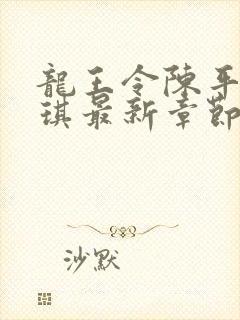 龍王令陳平
琪最新章節
沙默